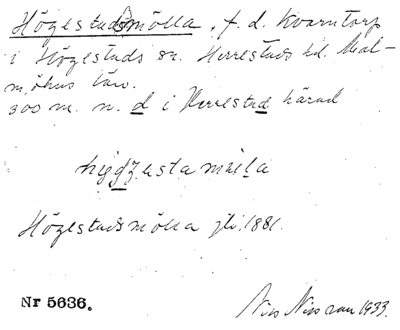 Högestadsmölla, f. d. kvarntorp
i Högestads sn. Herrestads hd. Mal-
möhus län.
300 m. n. d i Herrestad härad
Högestadsmölla jb. 1881.
Nr 5636.
Nils Nilsson 1933.